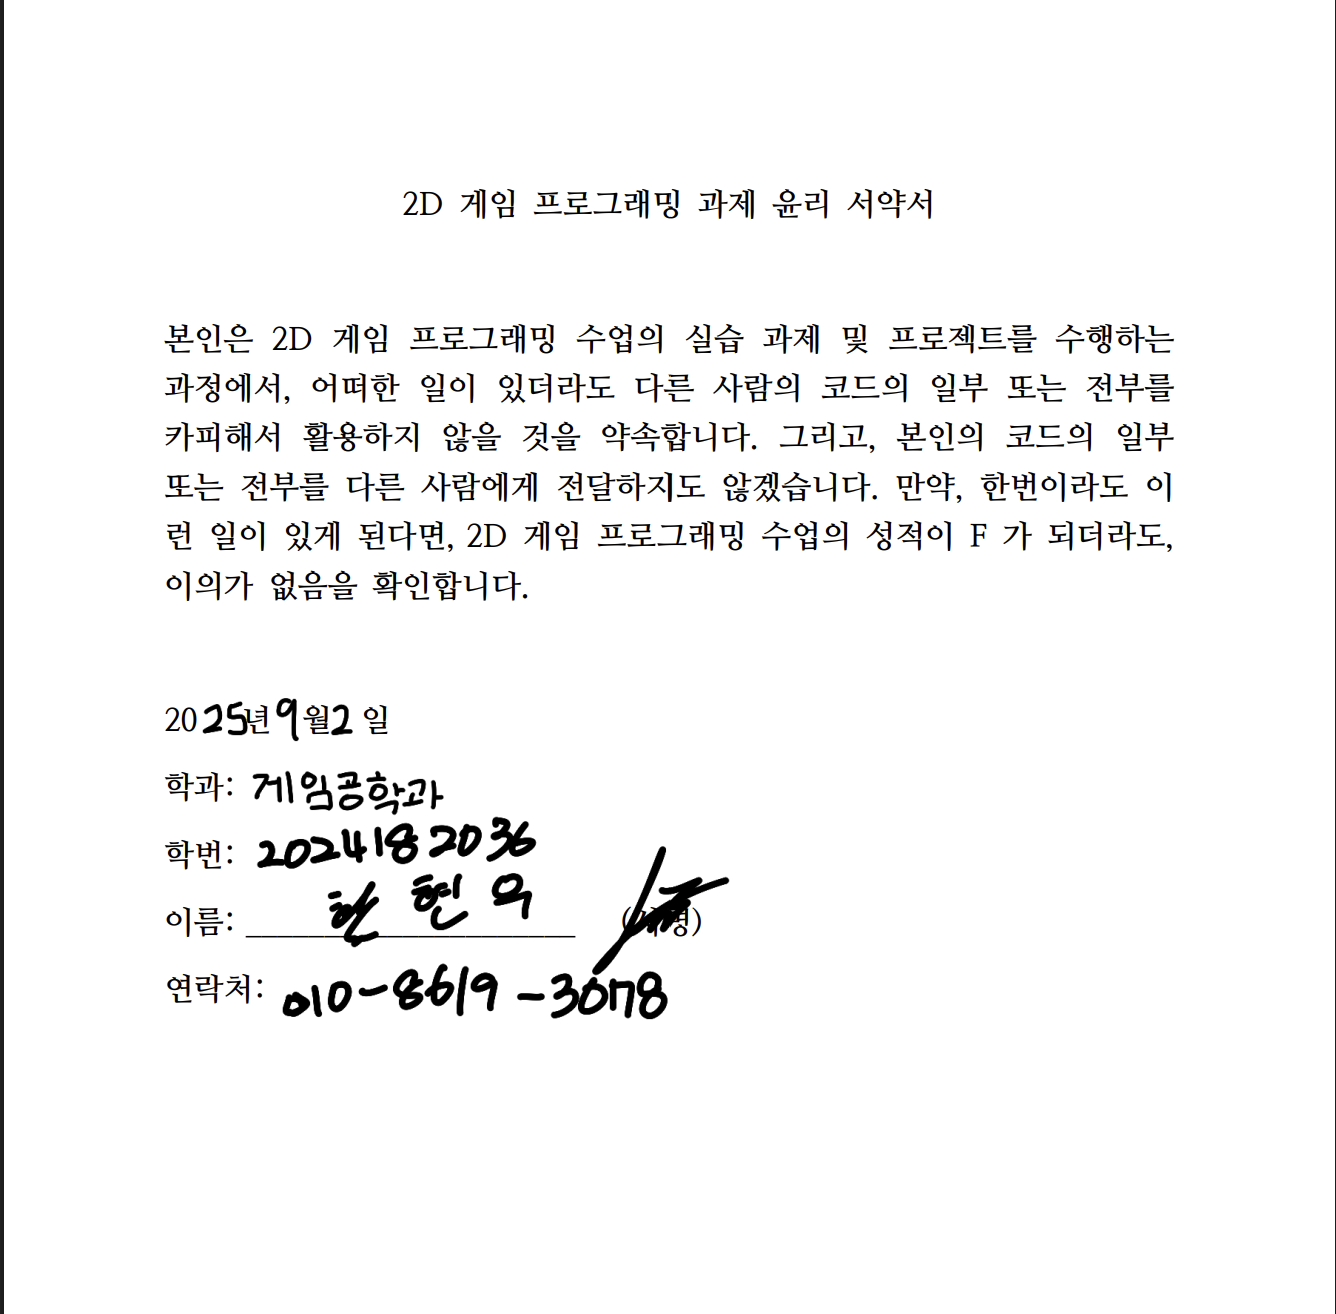 2D 게임 프로그래밍 과제 윤리 서약서
본인은 2D 게임 프로그래밍 수업의 실습 과제 및 프로젝트를 수행하는
과정에서, 어떠한 일이 있더라도 다른 사람의 코드의 일부 또는 전부를
카피해서 활용하지 않을 것을 약속합니다. 그리고, 본인의 코드의 일부
또는 전부를 다른 사람에게 전달하지도 않겠습니다. 만약, 한번이라도 이
런 일이 있게 된다면, 2D 게임 프로그래밍 수업의 성적이 F 가 되더라도,
이의가 없음을 확인합니다.
2025년 9월 2일
학과: 게임공학과
학번: 2024182036
이름:
연락처: 010-8619-3078